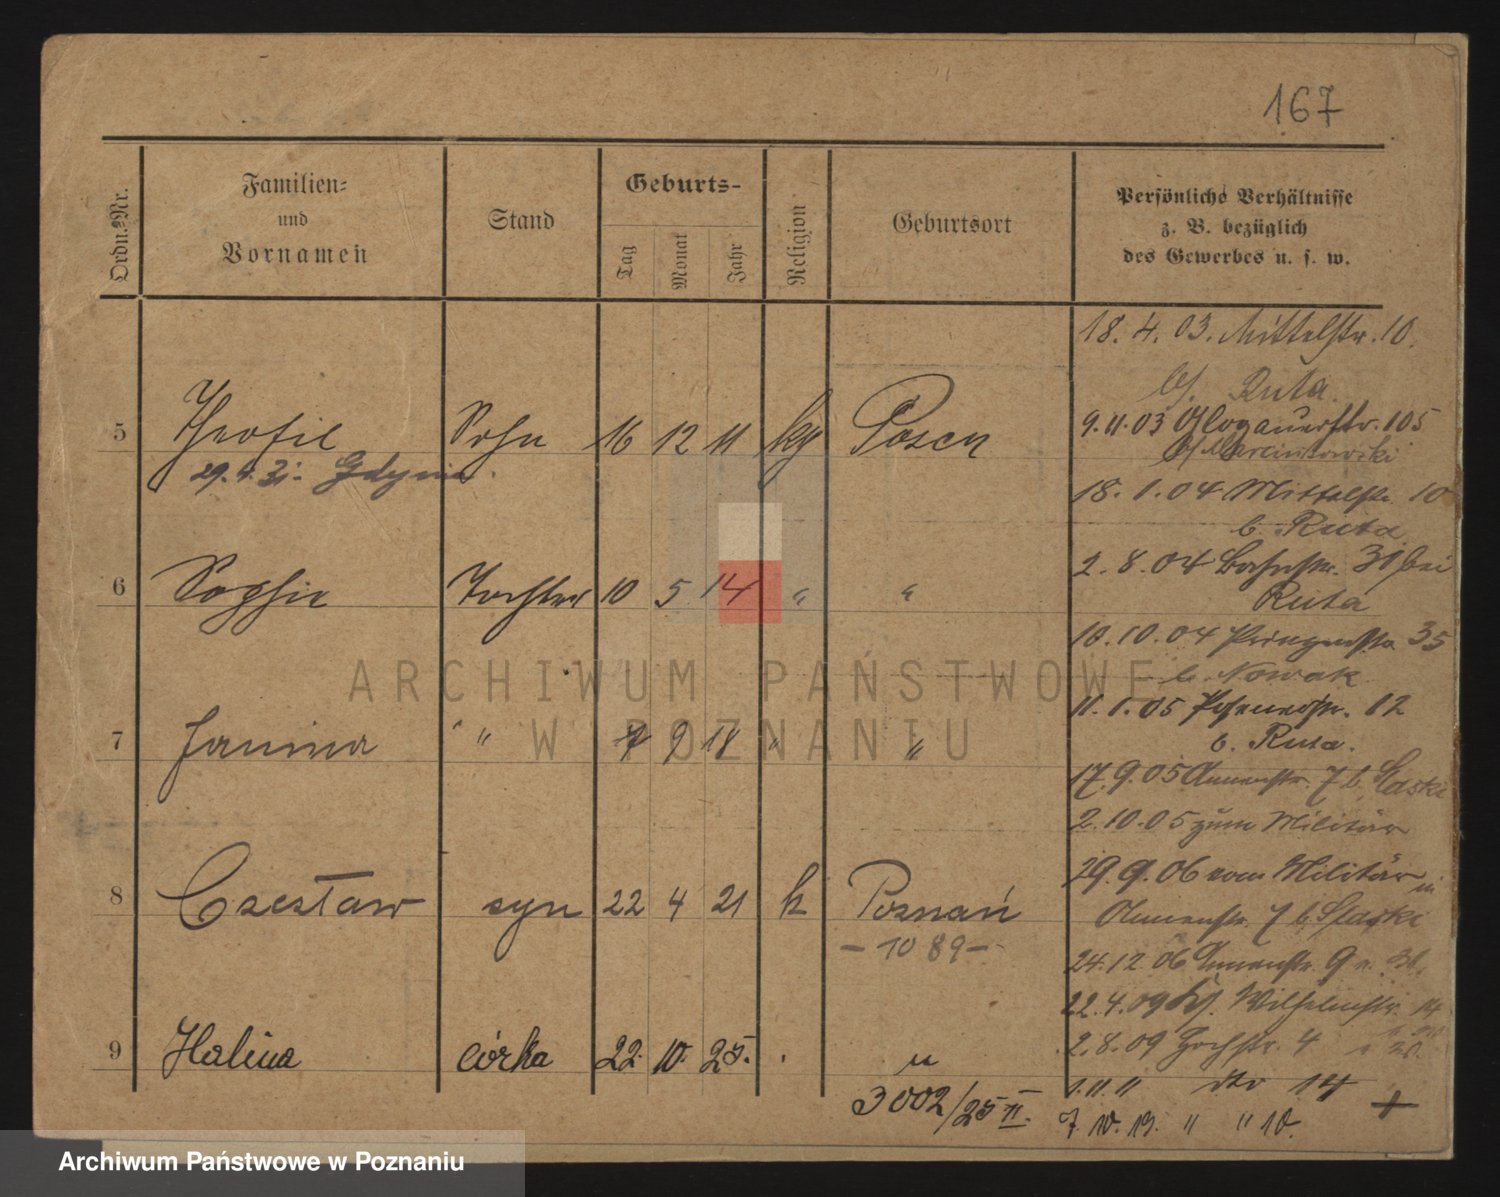 167
Ordn.-Nr.
Familien-
und
Vornamen
Stand
Geburts-
Tag
Monat
Jahr
Religion
Geburtsort
Persönliche Verhältnisse
z. B. bezüglich
des Gewerbes u. s. w.
5 Theofil Sohn 16 12 11 kg Posen
29.4.31. Gdynia.
6 Sophie Tochter 10 5 14 " "
7 Janina " 9 18 " "
8 Czesław syn 22 4 21 k Poznań
- 1089 -
9 Halina córka 22. 10. 25. "
3002/25 II.
18. 4. 03. Mittelstr. 10.
b/. Ruta.
9.11.03 Glogauerstr. 105
b/ Marcinkowski
18. 1. 04 Mittelstr. 10
b. Ruta
2. 8. 04 Bahnstr. 31 bei
Ruta
10. 10. 04 35
b. Nowak
11. 1. 05 12
b. Ruta.
17. 9. 05 Annenstr. 7 b.
2. 10. 05 zum Militär
29. 9. 06 vom Militär in
Annenstr. 7 b.
24. 12. 06 Annenstr. 9
22. 4. 09 Wilhelmstr. 14
2. 8. 09 Hochstr. 4
1. 11. " dto 14
7. 10. 19. " " 10.
ARCHIWUM PAŃSTWOWE
W POZNANIU
Archiwum Państwowe w Poznaniu